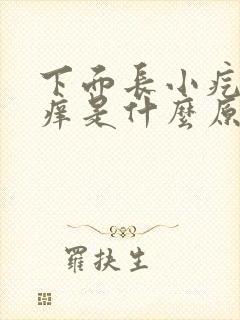 下面長小疙
癢是什麼原
羅扶生